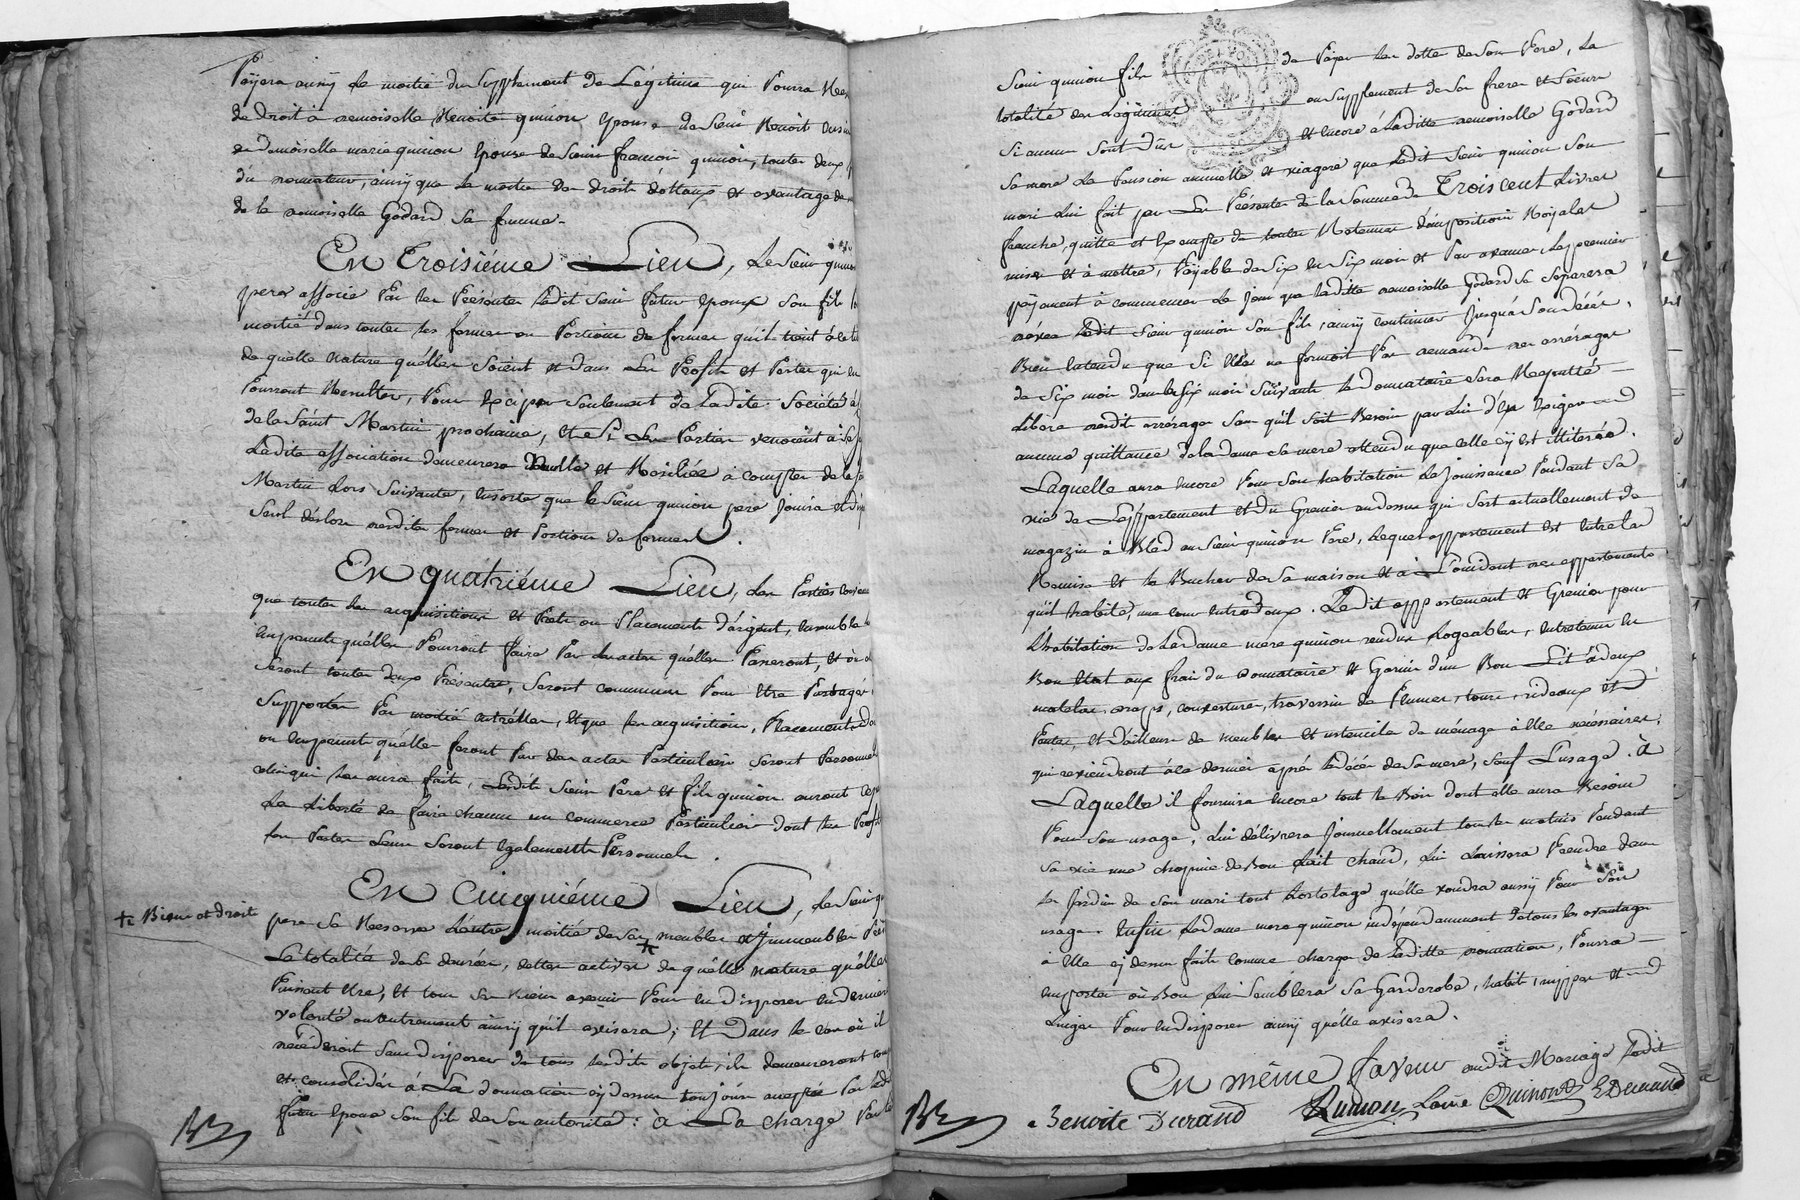 Payera aussy la moitié du supplement de Légitime qui Pourra
de droit à demoiselle Benoite quinion Epouse de Sieur Benoit
et demoiselle marie quinion Epouse de Sieur francois quinion, toutes deux
du donnateur, ainsy que la moitié des droits dottaux et avantages de
de la demoiselle Godard sa femme -
En Troisiéme Lieu, Le Sieur quinion
pere associe Par les Présentes ledit Sieur futur Epoux son fils
moitié dans toutes les fermes ou Portions de fermes qu'il tient
de quelle nature quélles soient et dans les Profits et Pertes qui en
Pourront Resulter, Pour Exciper seulement de Ladite Société
de la Saint Martin prochaine, et si les Parties venoient à se
Ladite association demeurera nulle et Resiliée à compter de la
Martin lors suivante, ensorte que le Sieur quinion pere Jouira
Seul déslors desdites fermes et Portions de fermes.
En quatriéme Lieu, Les Parties
que toutes les acquisitions et Prets ou Placements d'argent, ensemble
Emprunts quélles Pourront faire Par des actes quélles Passeront, et où
seront toutes deux Présentes, seront communes Pour Etre Partagés
Supportés Par moitié entrélles, et que les acquisitions, Placements
ou Emprunts quélles feront Par des actes Particuliers seront Personnels
celui qui les aura faits, Lesdits Sieurs Pere et fils quinion auront
La Liberté de faire chacun un commerce Particulier dont les Profits
Pertes Leurs seront Egalement Personnels.
En Cinquiéme Lieu, le Sieur
pere se Reserve L'autre moitié de ses + meubles et Jmmeubles
+ Biens et droits
La totalité de ses denrées, dettes actives de quélle nature quélles
Puissent Etre, et tous ses Pour en disposer
volonté ou autrement ainsy qu'il avisera; Et Dans le cas où il
décéderoit sans disposer de tous lesdits objets, ils demeureront
et consolidés à La donnation cy dessus toujours
futur Epoux son fils de son autorité: à La charge Par
Sieur quinion fils de Payer les dettes de son Pere, la
totalité des Légitimes ou supplement de ses freres et soeurs
si aucuns sont dus et encore à Laditte demoiselle Godard
sa mere La Pension annuelle et viagere que Ledit Sieur quinion son
mari lui fait par Les Présentes de la somme de Trois cent Livres
franche, quitte et Exempte de toutes Retenues d'impositions Royales
mises et à mettre, Payable de six en six mois et Par avance Le premier
payement à commencer Le jour que laditte demoiselle Godard se séparera
dudit Sieur quinion son fils, ainsy continuer jusqu'à son décés,
Bien Entendu que si Elle ne formoit Pas demande des arrérages
de six mois dans les six mois suivants le Donnataire sera Reputté
Libéré desdits arrérages sans qu'il soit Besoin par Lui d'en Exiger
aucune quittance de la dame sa mere attendu que celle cy est illiterée.
Laquelle aura Encore Pour son habitation La jouissance Pendant sa
vie de L'appartement et du Grenier au dessus qui sert actuellement de
magazin à Bled au Sieur quinion Pere, Lequel appartement est entre la
Remise et le Bucher de sa maison et à L'occident des appartements
qu'il habite, une cour entre deux. Ledit appartement et Grenier pour
L'habitation de La dame mere quinion rendus Logeables, entretenus en
Bon Etat aux frais du donnataire et Garnis d'un Bon Lit à deux
matelas, draps, couverture, traversin de Plumes, tours, rideaux et
Pentes, et D'ailleurs de meubles et ustenciles de ménage à Elle nécéssaires,
qui reviendront à ce dernier aprés le décés de sa mere, sauf L'usage. à
Laquelle il fournira Encore tout le Bois dont elle aura Besoin
Pour son usage, Lui délivrera journellement tous les matins Pendant
sa vie une chopine de Bon Lait chaud, Lui Laissera Prendre dans
le Jardin de son mari tout L'ortolage quélle voudra aussy Pour Son
usage. Enfin La dame mere quinion indépendamment de tous les avantages
à Elle cy dessus faits comme charge de Laditte donnation, Pourra
Emporter où Bon Lui Semblera sa Garderobe, habits, nippes et
Linges Pour en disposer ainsy quélle avisera.
En même faveur audit Mariage Ledit
Benoite Durand Quinion Quinion